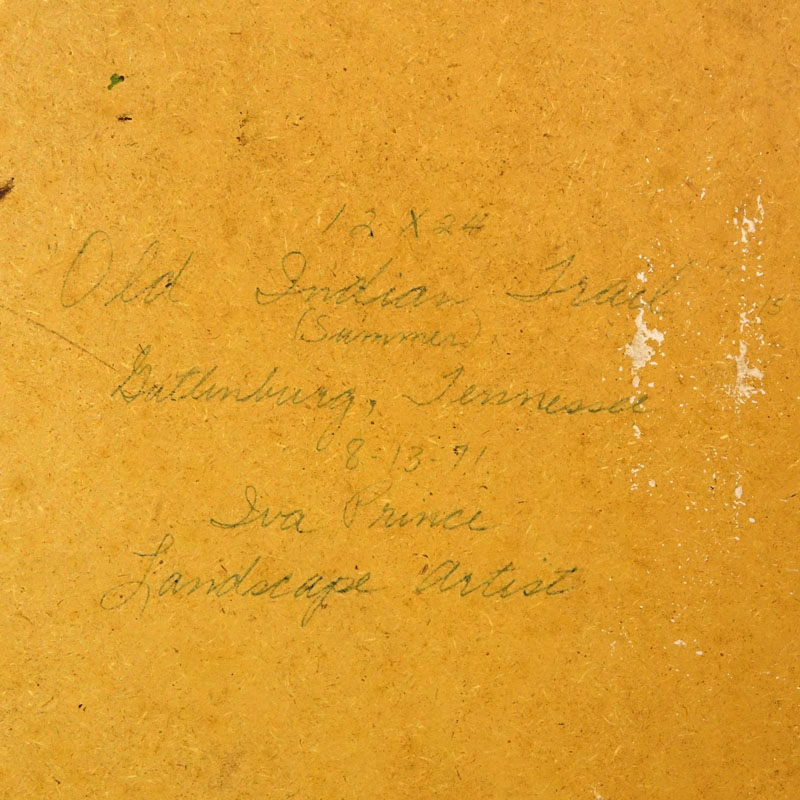 12 X 24
"Old Indian Trail" 15
(Summer)
Gatlinburg, Tennessee
8-13-71
Iva Prince
Landscape Artist